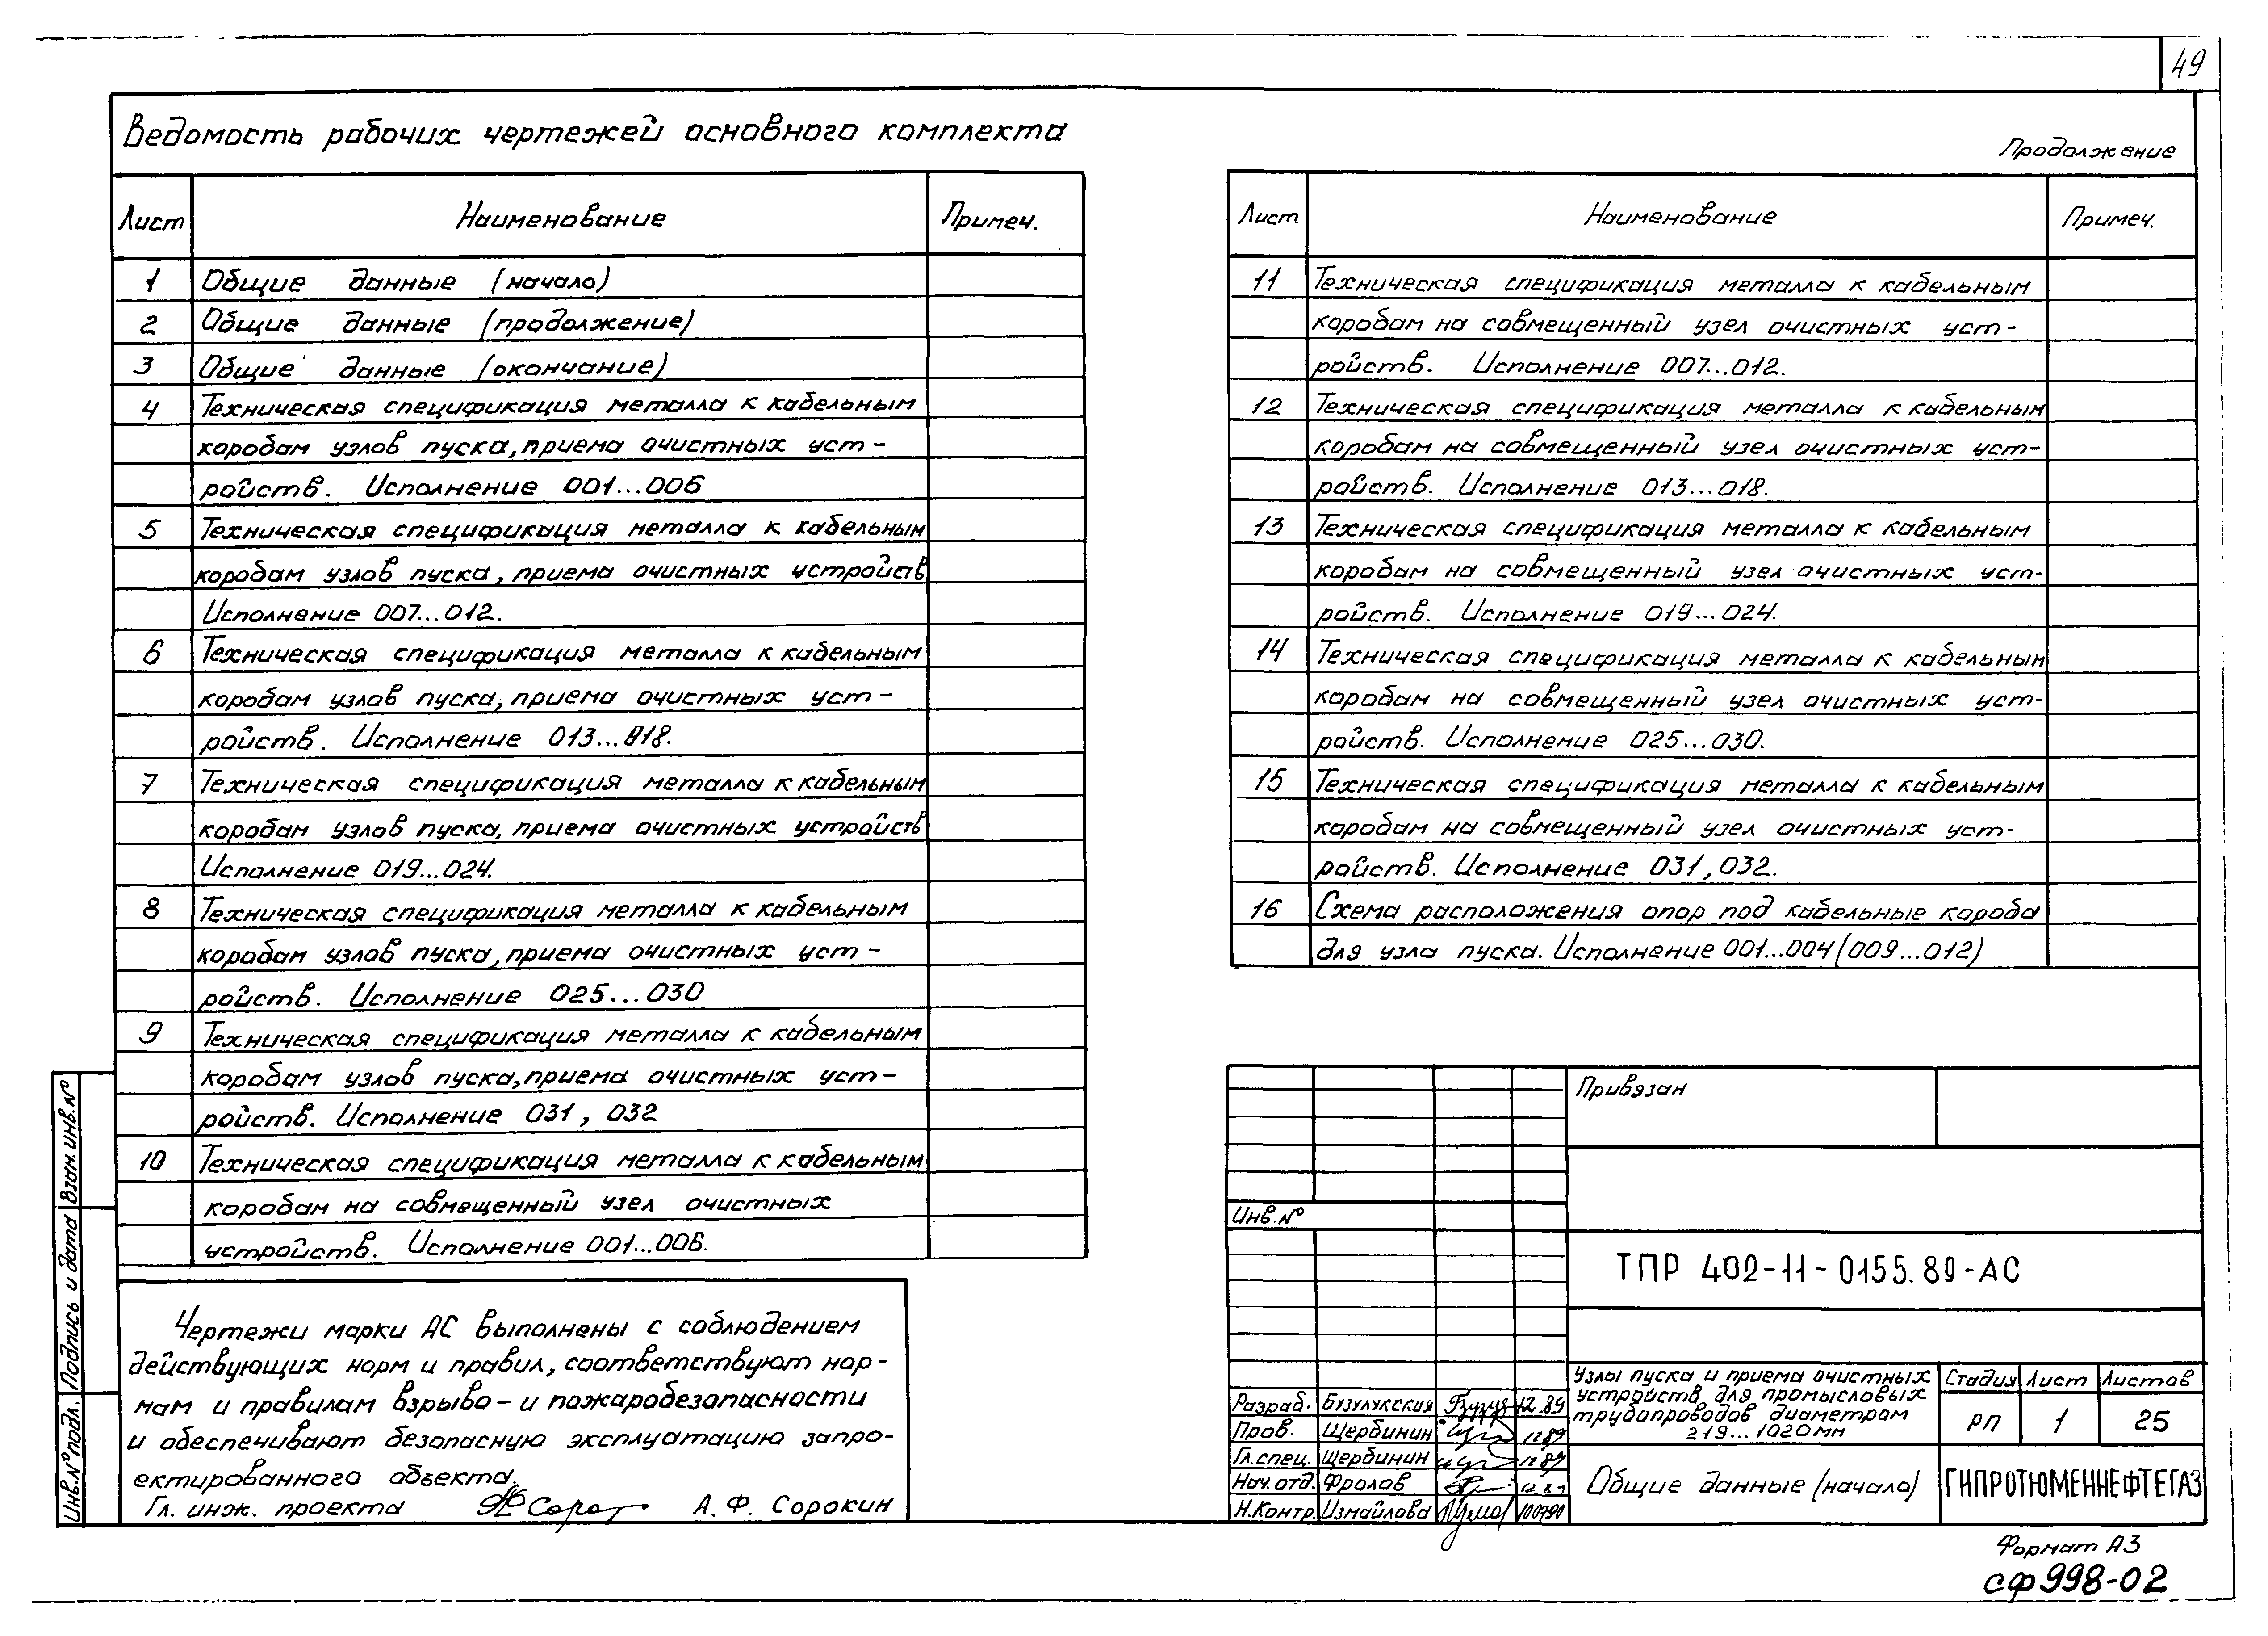 49
Ведомость рабочих чертежей основного комплекта
Лист Наименование Примеч.
1 Общие данные (начало)
2 Общие данные (продолжение)
3 Общие данные (окончание)
4 Техническая спецификация металла к кабельным
коробам узлов пуска, приема очистных уст-
ройств. Исполнение 001...006
5 Техническая спецификация металла к кабельным
коробам узлов пуска, приема очистных устройств
Исполнение 007...012.
6 Техническая спецификация металла к кабельным
коробам узлов пуска, приема очистных уст-
ройств. Исполнение 013...018.
7 Техническая спецификация металла к кабельным
коробам узлов пуска, приема очистных устройств
Исполнение 019...024.
8 Техническая спецификация металла к кабельным
коробам узлов пуска, приема очистных уст-
ройств. Исполнение 025...030
9 Техническая спецификация металла к кабельным
коробам узлов пуска, приема очистных уст-
ройств. Исполнение 031, 032
10 Техническая спецификация металла к кабельным
коробам на совмещенный узел очистных
устройств. Исполнение 001...006.
Продолжение
Лист Наименование Примеч.
11 Техническая спецификация металла к кабельным
коробам на совмещенный узел очистных уст-
ройств. Исполнение 007...012.
12 Техническая спецификация металла к кабельным
коробам на совмещенный узел очистных уст-
ройств. Исполнение 013...018.
13 Техническая спецификация металла к кабельным
коробам на совмещенный узел очистных уст-
ройств. Исполнение 019...024.
14 Техническая спецификация металла к кабельным
коробам на совмещенный узел очистных уст-
ройств. Исполнение 025...030.
15 Техническая спецификация металла к кабельным
коробам на совмещенный узел очистных уст-
ройств. Исполнение 031, 032.
16 Схема расположения опор под кабельные короба
для узла пуска. Исполнение 001...004 (009...012)
Чертежи марки АС выполнены с соблюдением
действующих норм и правил, соответствуют нор-
мам и правилам взрыво- и пожаробезопасности
и обеспечивают безопасную эксплуатацию запро-
ектированного объекта.
Гл. инж. проекта А. Ф. Сорокин
Взан. инв. №
Подпись и дата
Инв. № подл.
Привязан
Инв. №
ТПР 402-11-0155.89-АС
Разраб. Бузулукская 12.89
Пров. Щербинин 12.89
Гл. спец. Щербинин 12.89
Нач. отд. Фролов 12.89
Н. Контр. Измайлова 100790
Узлы пуска и приема очистных
устройств для промысловых
трубопроводов диаметрам
219...1020мм
Стадия Лист Листов
рп 1 25
Общие данные (начало)
ГИПРОТЮМЕННЕФТЕГАЗ
Формат А3
сф998-02